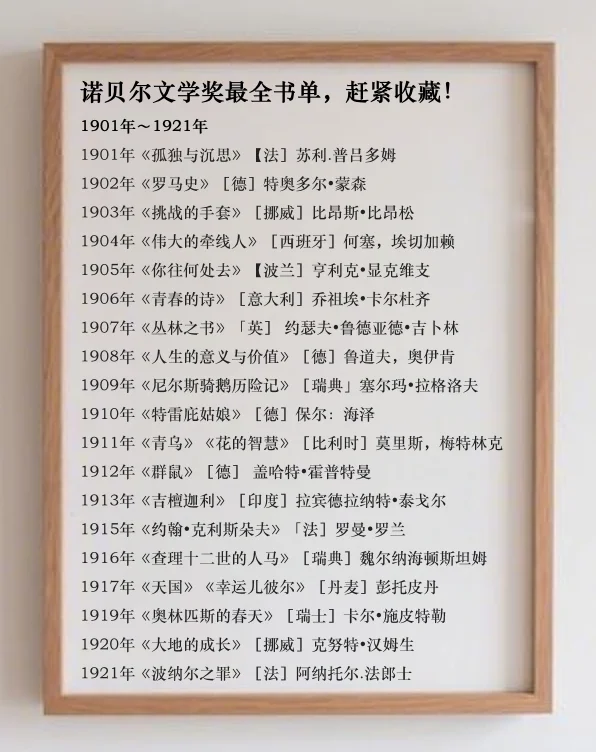 诺贝尔文学奖最全书单，赶紧收藏！
1901年～1921年
1901年《孤独与沉思》【法］苏利.普吕多姆
1902年《罗马史》［德］特奥多尔•蒙森
1903年《挑战的手套》［挪威］比昂斯•比昂松
1904年《伟大的牵线人》［西班牙］何塞，埃切加赖
1905年《你往何处去》【波兰］亨利克•显克维支
1906年《青春的诗》［意大利］乔祖埃•卡尔杜齐
1907年《丛林之书》「英］ 约瑟夫•鲁德亚德•吉卜林
1908年《人生的意义与价值》［德］鲁道夫，奥伊肯
1909年《尼尔斯骑鹅历险记》［瑞典」塞尔玛•拉格洛夫
1910年《特雷庇姑娘》［德］保尔：海泽
1911年《青鸟》《花的智慧》［比利时］莫里斯，梅特林克
1912年《群鼠》［德］ 盖哈特•霍普特曼
1913年《吉檀迦利》［印度］拉宾德拉纳特•泰戈尔
1915年《约翰•克利斯朵夫》「法］罗曼•罗兰
1916年《查理十二世的人马》［瑞典］魏尔纳海顿斯坦姆
1917年《天国》《幸运儿彼尔》［丹麦］彭托皮丹
1919年《奥林匹斯的春天》［瑞士］卡尔•施皮特勒
1920年《大地的成长》［挪威］克努特•汉姆生
1921年《波纳尔之罪》［法］阿纳托尔.法郎士